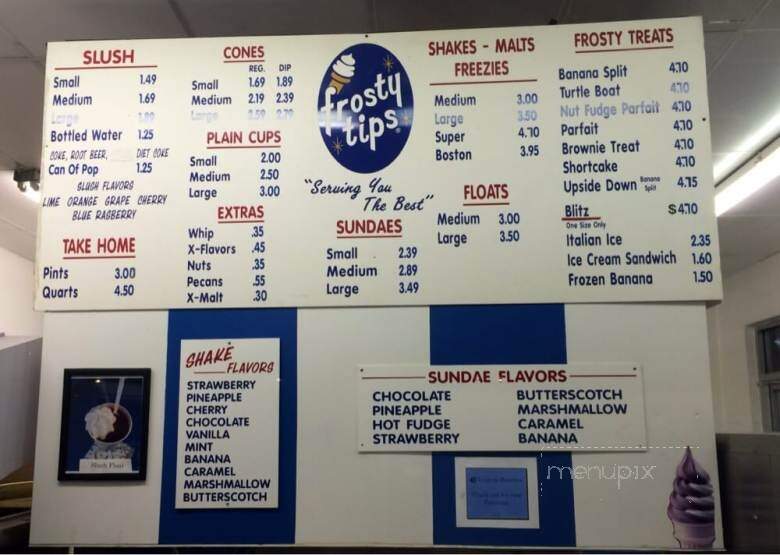 SLUSH
Small 1.49
Medium 1.69
Large 1.89
Bottled Water 1.25
COKE, ROOT BEER, DIET COKE
Can Of Pop 1.25
SLUSH FLAVORS
LIME ORANGE GRAPE CHERRY
BLUE RASBERRY
TAKE HOME
Pints 3.00
Quarts 4.50
CONES
REG. DIP
Small 1.69 1.89
Medium 2.19 2.39
Large 2.59 2.79
PLAIN CUPS
Small 2.00
Medium 2.50
Large 3.00
EXTRAS
Whip .35
X-Flavors .45
Nuts .35
Pecans .55
X-Malt .30
frosty
tips
"Serving You
The Best"
SUNDAES
Small 2.39
Medium 2.89
Large 3.49
SHAKES - MALTS
FREEZIES
Medium 3.00
Large 3.50
Super 4.70
Boston 3.95
FLOATS
Medium 3.00
Large 3.50
FROSTY TREATS
Banana Split 4.70
Turtle Boat 4.70
Nut Fudge Parfait 4.70
Parfait 4.70
Brownie Treat 4.70
Shortcake 4.70
Upside Down Banana Split 4.75
Blitz $4.70
One Size Only
Italian Ice 2.35
Ice Cream Sandwich 1.60
Frozen Banana 1.50
SHAKE
FLAVORS
STRAWBERRY
PINEAPPLE
CHERRY
CHOCOLATE
VANILLA
MINT
BANANA
CARAMEL
MARSHMALLOW
BUTTERSCOTCH
SUNDAE FLAVORS
CHOCOLATE BUTTERSCOTCH
PINEAPPLE MARSHMALLOW
HOT FUDGE CARAMEL
STRAWBERRY BANANA
menupix